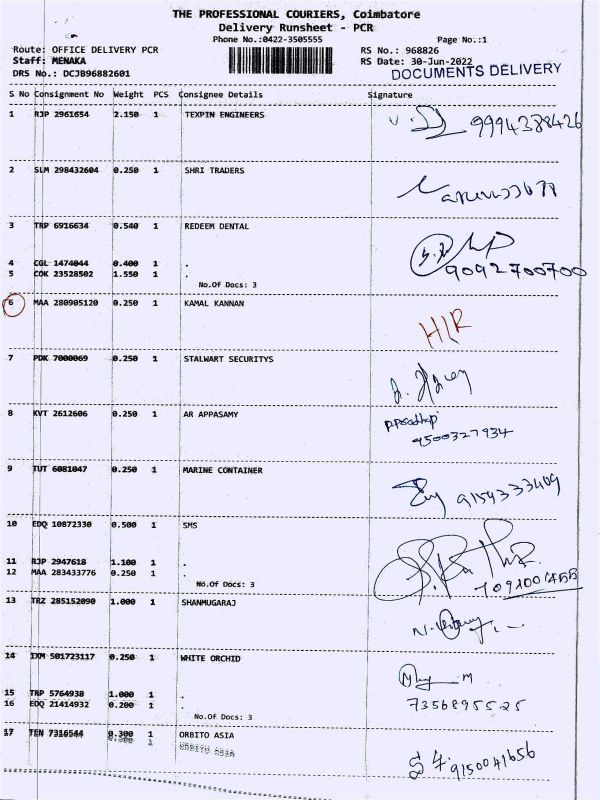 THE PROFESSIONAL COURIERS, Coimbatore
Delivery Runsheet - PCR
Phone No.:0422-3505555 Page No.:1
Route: OFFICE DELIVERY PCR RS No.: 968826
Staff: MENAKA RS Date: 30-Jun-2022
DRS No.: DCJB96882601 DOCUMENTS DELIVERY
S No Consignment No Weight PCS Consignee Details Signature
1 RJP 2961654 2.150 1 TEXPIN ENGINEERS 9994388426
2 SLM 298432604 0.250 1 SHRI TRADERS
3 TRP 6916634 0.540 1 REDEEM DENTAL
4 CGL 1474044 0.400 1 .
5 COK 23528502 1.550 1 . 9092700700
No.Of Docs: 3
6 MAA 280905120 0.250 1 KAMAL KANNAN
H/R
7 PDK 7000069 0.250 1 STALWART SECURITYS
8 KVT 2612606 0.250 1 AR APPASAMY
9500327934
9 TUT 6081047 0.250 1 MARINE CONTAINER
9159333409
10 EDQ 10872330 0.500 1 SMS
11 RJP 2947618 1.100 1 .
12 MAA 283433776 0.250 1 .
No.Of Docs: 3
13 TRZ 285152090 1.000 1 SHANMUGARAJ
14 IXM 501723117 0.250 1 WHITE ORCHID
15 TRP 5764938 1.000 1 .
16 EDQ 21414932 0.200 1 . 7356895525
No.Of Docs: 3
17 TEN 7316544 0.300 1 ORBITO ASIA
0.300 1 ORBITO ASIA
9150041656